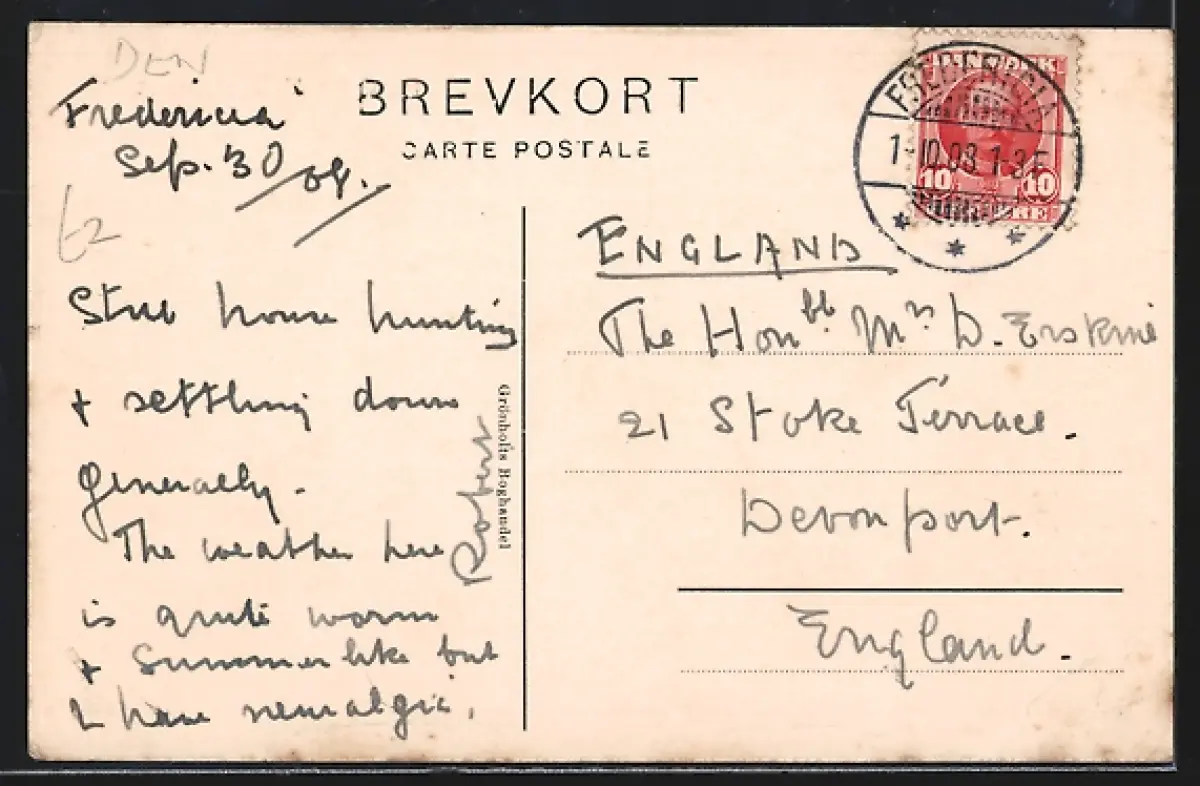 DEN
Fredericia
Sep. 30/08.
BREVKORT
CARTE POSTALE
DANMARK
10 10
ØRE
FREDERICIA
1-10.08 1-3 E
62
Still house hunting
+ settling down
generally.
The weather here
is quite warm
+ summer like but
I have neuralgia.
Robert
Grönholts Boghandel
ENGLAND
The Honble Mrs D. Erskine
21 Stoke Terrace.
Devonport.
England.